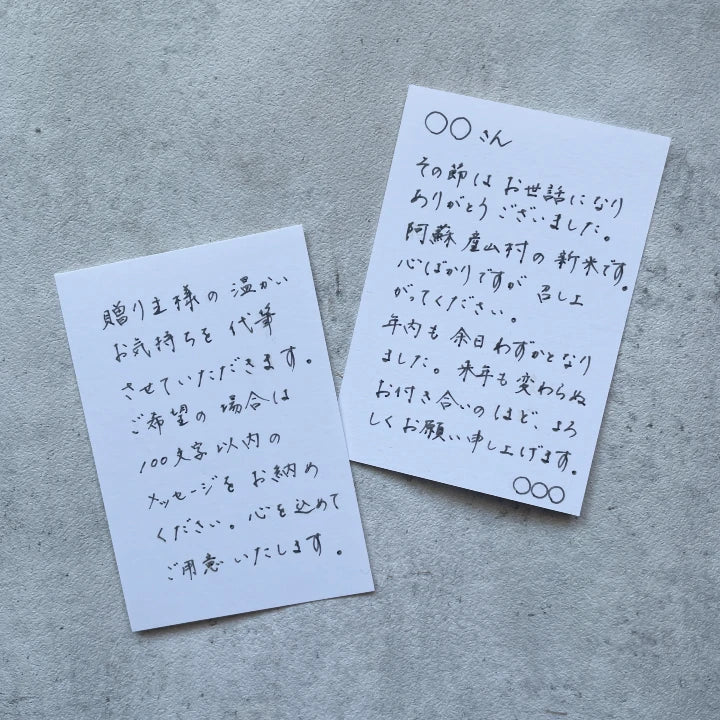 贈り主様の温かい
お気持ちを代筆
させていただきます。
ご希望の場合は
100文字以内の
メッセージをお納め
ください。心を込めて
ご用意いたします。
○○さん
その節はお世話になり
ありがとうございました。
阿蘇産山村の新米です。
心ばかりですが召し上
がってください。
年内も余日わずかとなり
ました。来年も変わらぬ
お付き合いのほど、よろ
しくお願い申し上げます。
○○○